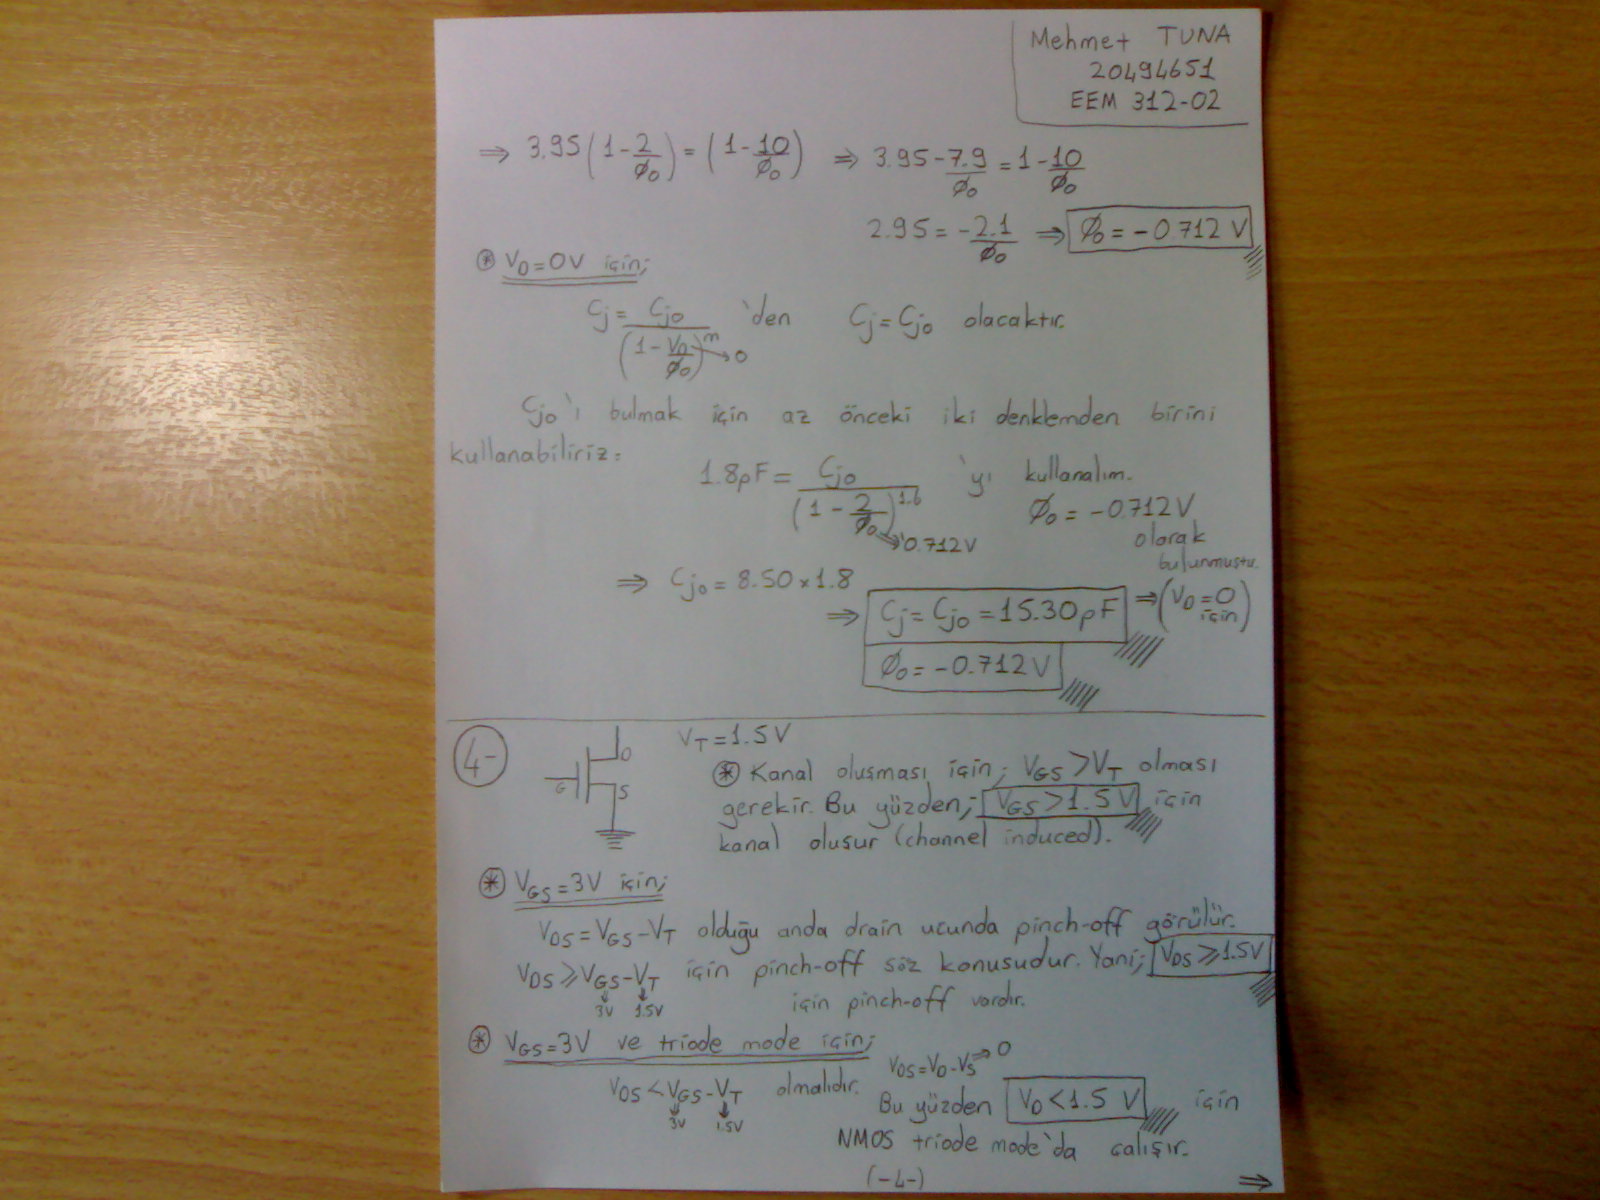 Mehmet TUNA
20494651
EEM 312-02
⇒ 3.95(1 - 2/Ø₀) = (1 - 10/Ø₀) ⇒ 3.95 - 7.9/Ø₀ = 1 - 10/Ø₀
2.95 = -2.1/Ø₀ ⇒ Ø₀ = -0.712 V
⊛ V_D = 0V için;
C_j = C_jo/(1 - V_D/Ø₀)^m → 0 'den C_j = C_jo olacaktır.
C_jo'ı bulmak için az önceki iki denklemden birini
kullanabiliriz:
1.8pF = C_jo/(1 - 2/Ø₀)^1.6 'yı kullanalım.
Ø₀ = -0.712V
⇒ -0.712V olarak
bulunmuştu.
⇒ C_jo = 8.50 × 1.8
⇒ C_j = C_jo = 15.30pF ⇒ (V_D = 0 için)
Ø₀ = -0.712 V
4- V_T = 1.5V
D
G
S
⊛ Kanal oluşması için; V_GS > V_T olması
gerekir. Bu yüzden; V_GS > 1.5 V için
kanal oluşur (channel induced).
⊛ V_GS = 3V için;
V_DS = V_GS - V_T olduğu anda drain ucunda pinch-off görülür.
V_DS ⩾ V_GS - V_T için pinch-off söz konusudur. Yani; V_DS ⩾ 1.5V
3V 1.5V için pinch-off vardır.
⊛ V_GS = 3V ve triode mode için;
V_DS = V_D - V_S ⇒ 0
V_DS < V_GS - V_T olmalıdır.
3V 1.5V
Bu yüzden V_D < 1.5 V için
NMOS triode mode'da çalışır.
(-4-) ⇒